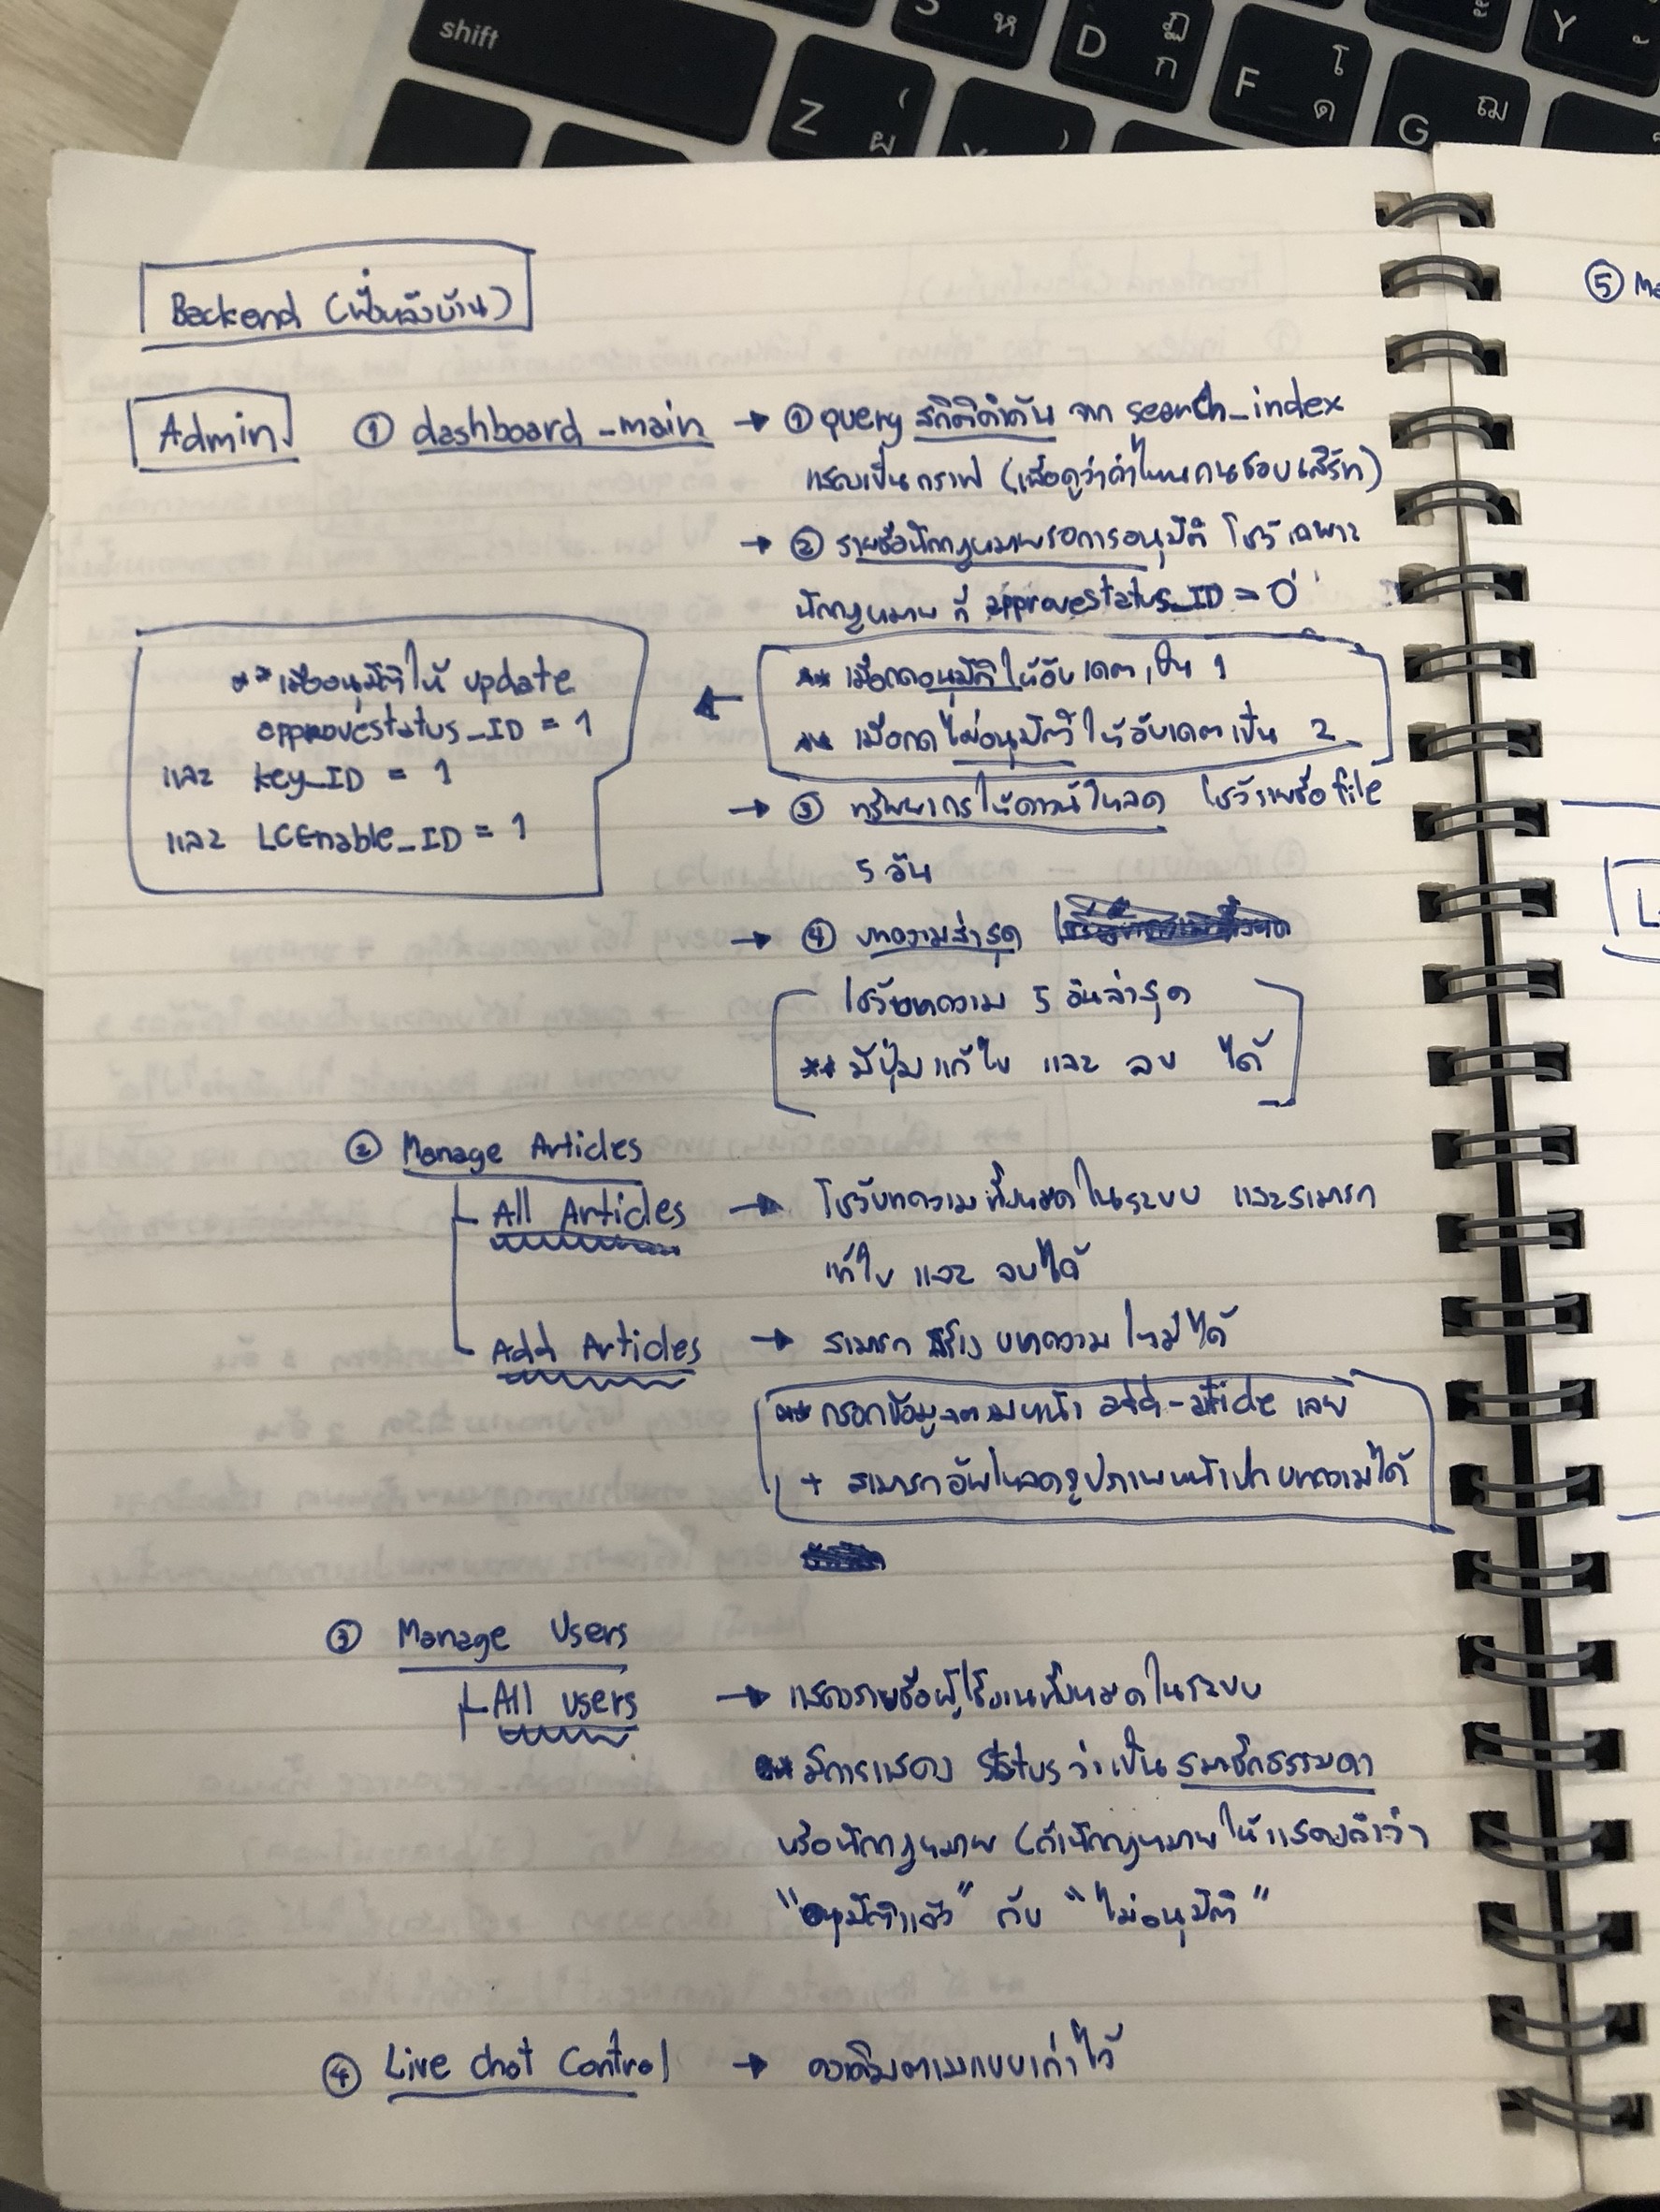 shift
ห
D
ฏ
ก
F
โ
ด
G
ฌ
Y
Z
(
ผ
)
Backend (ฝั่งหลังบ้าน)
Admin
① dashboard_main → ① query สถิติคำค้น จาก search_index
แสดงเป็นกราฟ (เพื่อดูว่าคำไหนคนชอบเสิร์ช)
→ ② รายชื่อนักกฎหมายรอการอนุมัติ โชว์เฉพาะ
นักกฎหมาย ที่ approvestatus_ID = 0
** เมื่อกดอนุมัติให้อัพเดตเป็น 1
** เมื่อกดไม่อนุมัติให้อัพเดตเป็น 2
** เมื่ออนุมัติให้ update
approvestatus_ID = 1
และ key_ID = 1
และ LCEnable_ID = 1
→ ③ ทรัพยากรให้ดาวน์โหลด โชว์รายชื่อ file
5 อัน
→ ④ บทความล่าสุด
โชว์บทความ 5 อันล่าสุด
** มีปุ่มแก้ไข และ ลบ ได้
② Manage Articles
All Articles → โชว์บทความทั้งหมดในระบบ และสามารถ
แก้ไข และ ลบได้
Add Articles → สามารถ สร้าง บทความใหม่ได้
** กรอกข้อมูลตามหน้า add-article เลย
+ สามารถอัพโหลดรูปภาพหน้าปกบทความได้
③ Manage Users
All users → แสดงรายชื่อผู้ใช้งานทั้งหมดในระบบ
** มีการแสดง status ว่าเป็นสมาชิกธรรมดา
หรือนักกฎหมาย (ถ้านักกฎหมายให้แสดงคำว่า
"อนุมัติแล้ว" กับ "ไม่อนุมัติ"
④ Live chat Control → คงเดิมตามแบบเก่าไว้
⑤ Ma
L